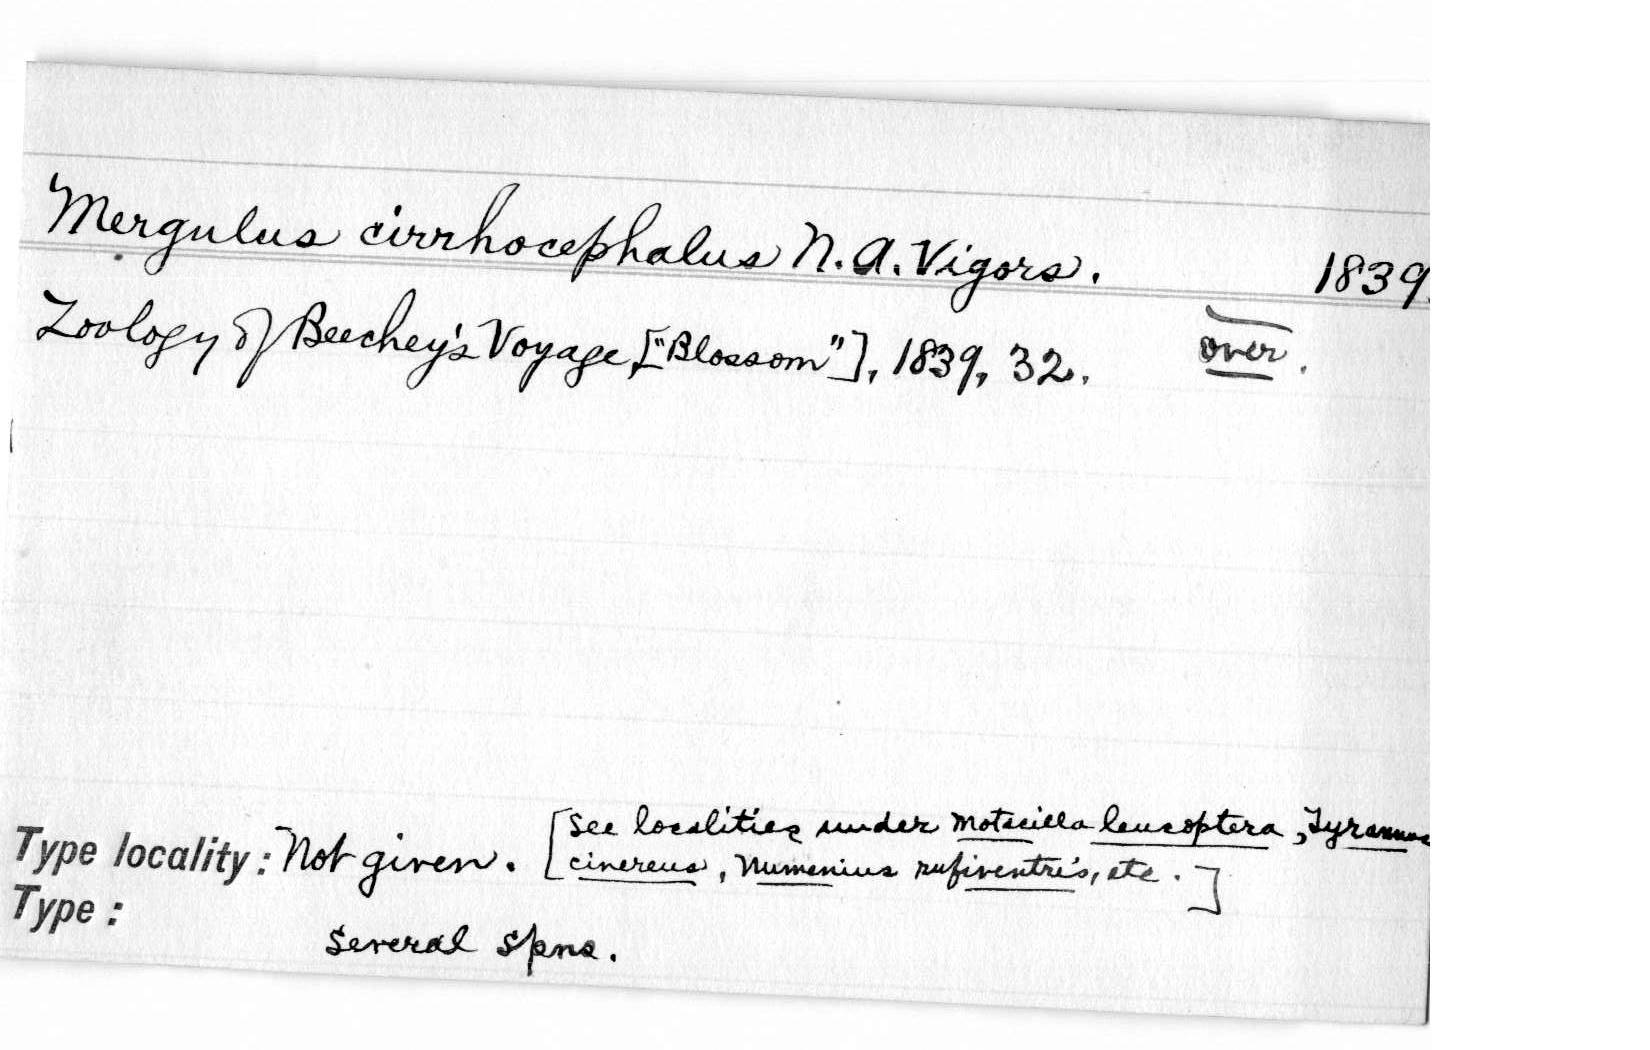 Mergulus cirrhocephalus N.A. Vigors. 1839.
Zoology of Beechey's Voyage, ["Blossom"], 1839, 32. over.
Type locality: Not given. [See localities under Motacilla leucoptera, Tyrannus
cinereus, Numenius rufiventris, etc.]
Type:
Several spns.